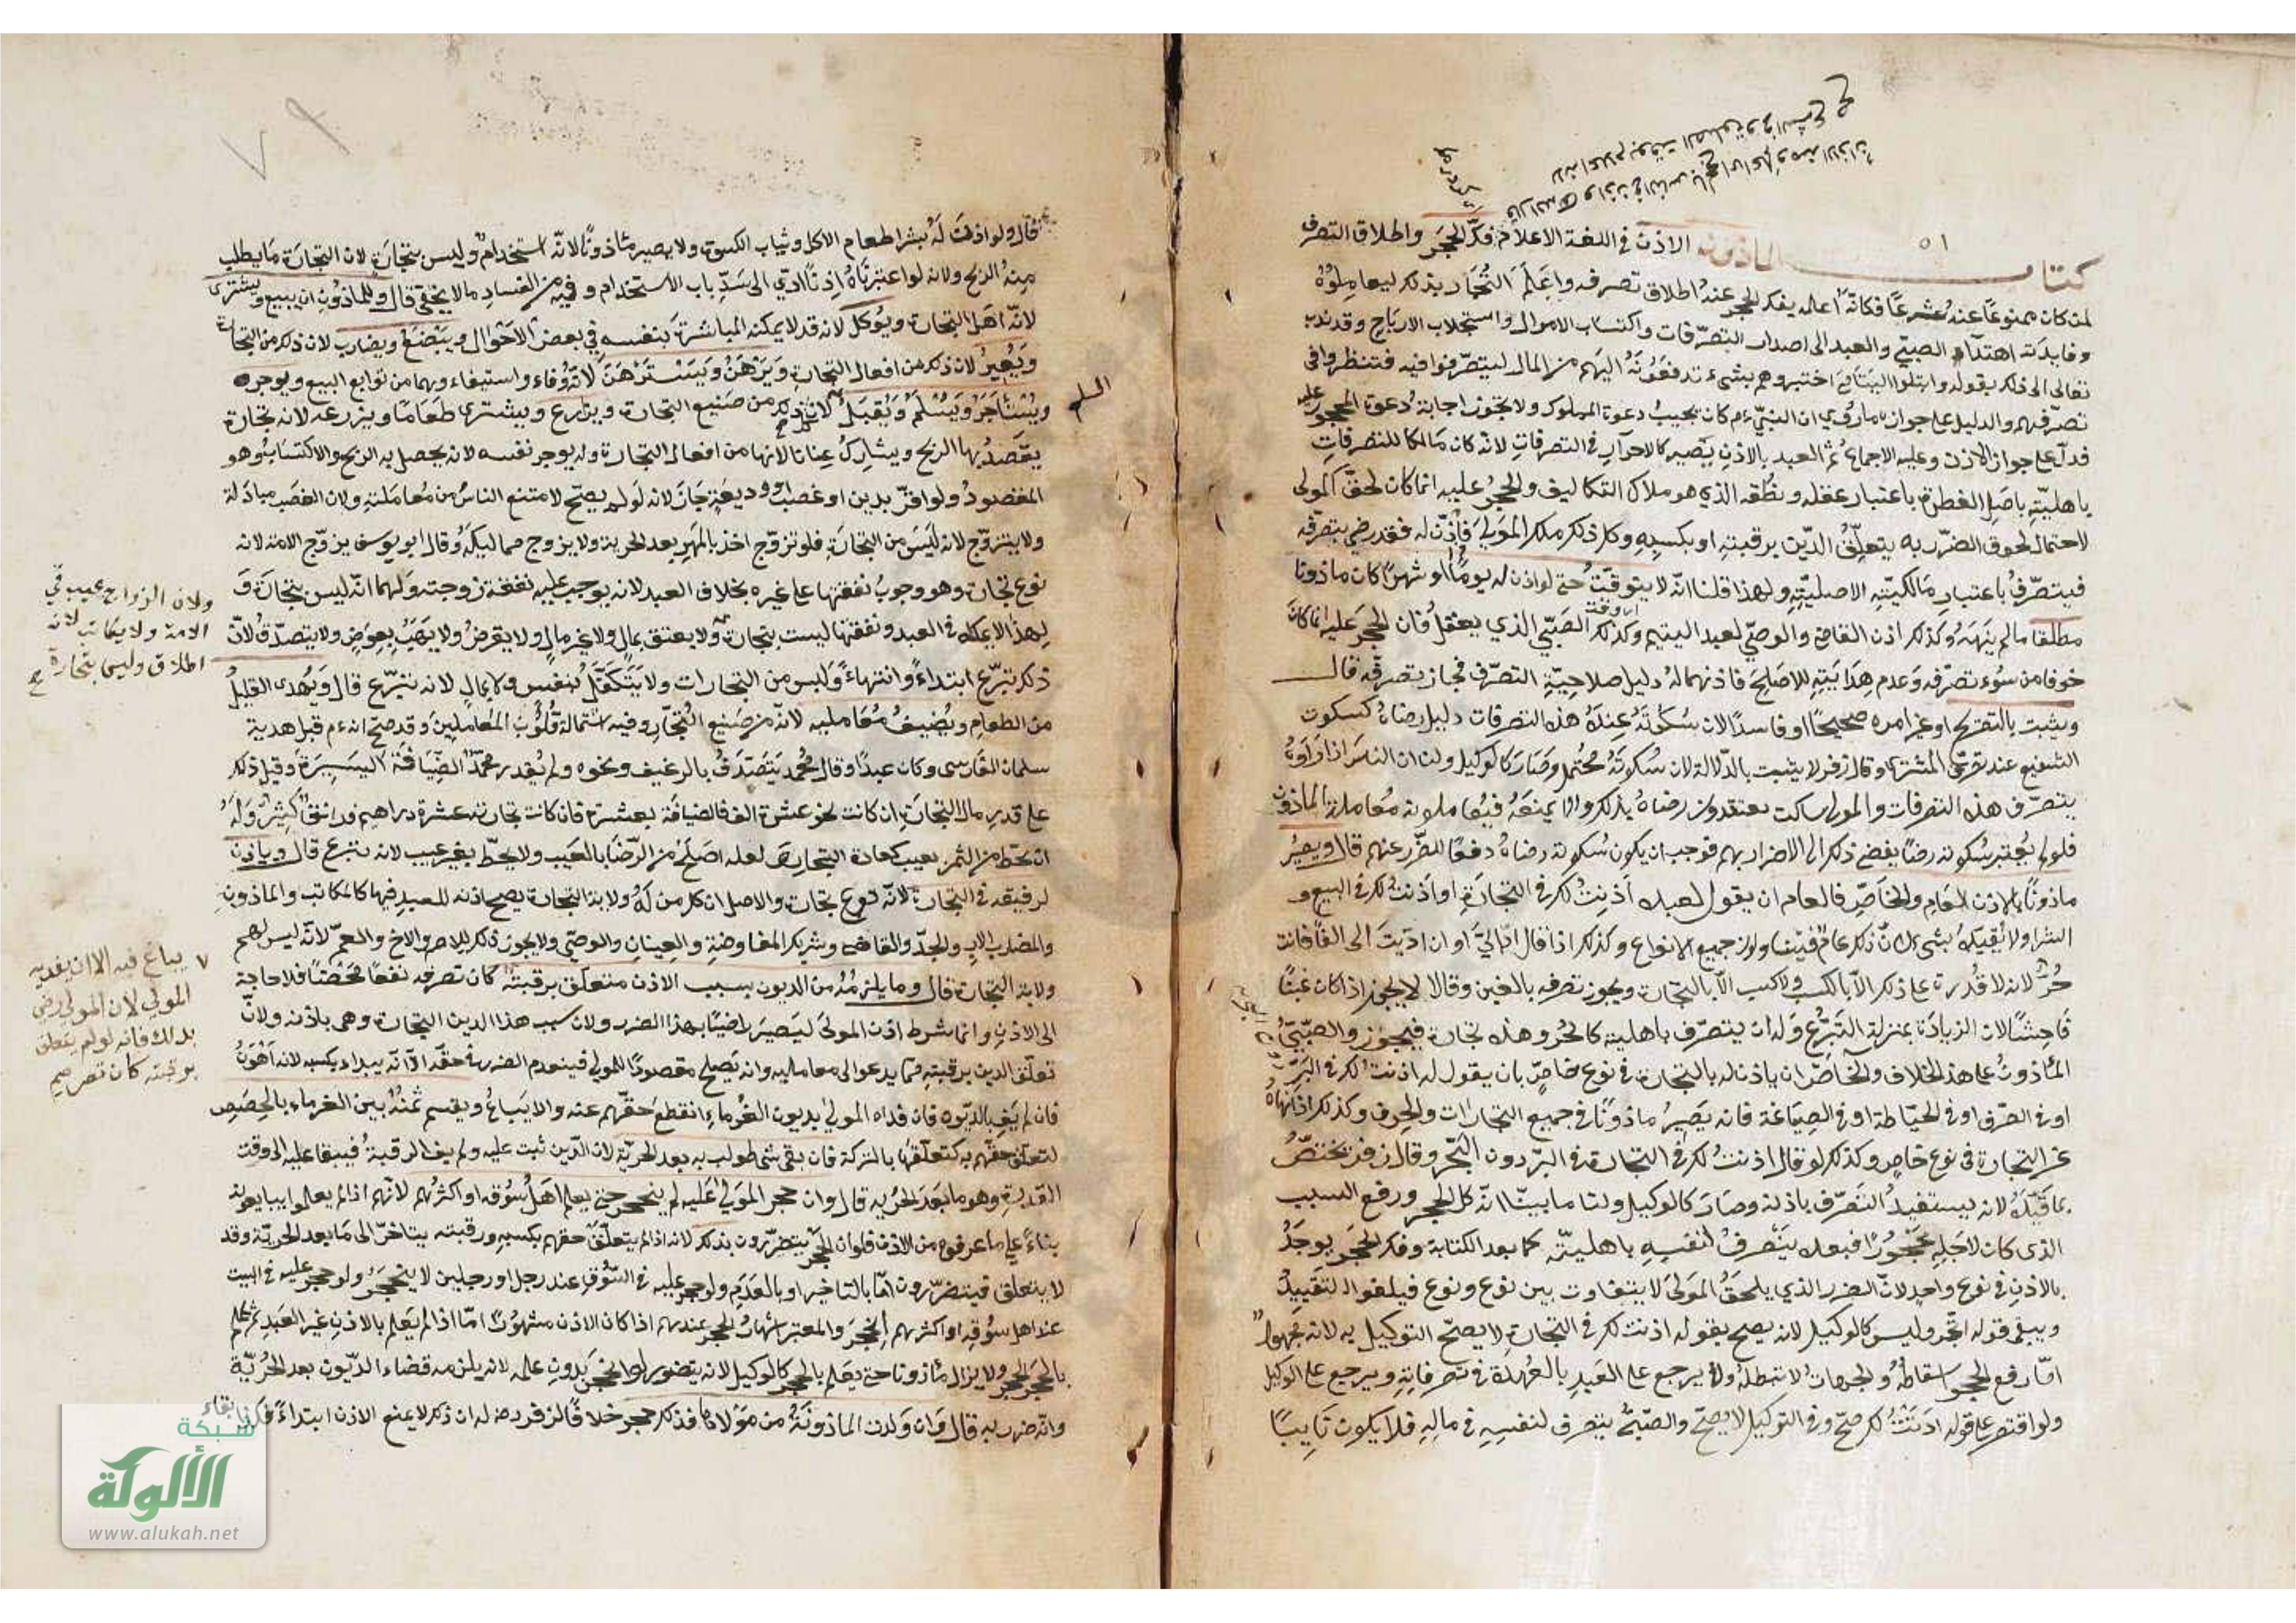 ٥١
كتاب المأذون الاذن في اللغة الاعلام فكّ الحجر واطلاق التصرف
لمن كان ممنوعًا عنه شرعًا فكانه اعلمه بفك الحجر عنه واطلاق تصرفه واعلم التجار بذلك ليعاملوه
وفايدته اهتداء الصبيّ والعبد الى اصدار التصرّفات واكتساب الاموال واستجلاب الارباح وقد ندب
تعالى الى ذلك بقوله وابتلوا اليتامى اختبروهم بشيء تدفعونه اليهم من المال ليتصرّفوا فيه فتنظروا في
تصرّفهم والدليل على جوازه ماروي ان النبيّ ءم كان يجيب دعوة المملوك ولا يجوز اجابة دعوة المحجور عليه
فدلّ على جواز الاذن وعليه الاجماع ثم العبد بالاذن يصير كالاحرار في التصرفات لانه كان مالكا للتصرفات
باهليّته باصل الفطرة باعتبار عقله ونطقه الذي هو ملاك التكاليف والحجر عليه انما كان لحقّ المولى
لاحتمال لحوق الضرر به يتعلّق الدين برقبته او بكسبه وكل ذلك ملك المولى فاذا اذن له فقد رضي بتصرّفه
فيتصرّف باعتبار مالكيّته الاصليّة ولهذا قلنا انه لا يتوقّت حتى لو اذن له يومًا او شهرًا كان ماذونا
مطلقا مالم ينهه وكذلك اذن القاضي والوصيّ لعبد اليتيم وكذلك الصبيّ الذي يعقل فان الحجر عليه انما كان
خوفا من سوء تصرّفه وعدم هدايته للاصلح فاذنهما له دليل صلاحيّة التصرّف فجاز تصرفه قال
ويثبت بالتصريح او غير امره صحيحًا او فاسدًا لان سكوته عند هذه التصرفات دليل رضاه كسكوت
الشفيع عند تصرّف المشترى وقال زفر لا يثبت بالدلالة لان سكوته محتمل وصار كالوكيل ولنا ان الناس اذا راوه
يتصرّف هذه التصرفات والمولى ساكت يعتقدون رضاه بذلك والا يمنعه فيعاملونه معاملة الماذون
فلو لم يُعتبر سكوته رضًا يفضي ذلك الى الاضرار بهم فوجب ان يكون سكوته رضاه دفعًا للضرر عنهم قال ويصير
ماذونًا بالاذن العام والخاصّ فالعام ان يقول لعبده اذنت لك في التجارة او اذنت لك في البيع و
الشرا ولا يُقيده بشيء لان ذلك عامّ فيتناول جميع الانواع وكذلك اذا قال ادّ اليّ او ان ادّيت الى الفًا فانت
حُرّ لانه لا قدرة على ذلك الّا بالكسب ولا كسب الّا بالتجارة ويجوز تصرفه بالغبن وقالا لا يجوز اذا كان غبنًا
فاحشًا لان الزيادة بمنزلة التبرّع وله ان يتصرّف باهليته كالحُرّ وهذه تجارة فيجوز والصبيّ
الماذون على هذا الخلاف والخاصّ ان ياذن له بالتجارة في نوع خاصّ بان يقول له اذنت لك في البزّ
او في الصرف او في الخيّاطة او في الصياغة فانه يصير ماذونًا في جميع التجارات والحرف وكذلك اذا نهاه
عن التجارة في نوع خاصّ وكذلك لو قال اذنت لك في التجارة في البرّ دون البحر وقال زفر يختصّ
بما قيّده لانه يستفيد التصرّف باذنه وصار كالوكيل ولنا ما بيّنا انه فك الحجر ورفع السبب
الذى كان لاجله محجورًا فبعده يتصرف لنفسه باهليته كما بعد الكتابة وفك الحجر يوجد
بالاذن في نوع واحد لانّ الضرر الذي يلحق المولى لا يتفاوت بين نوع ونوع فيلغوا التقييد
ويبقى قوله اتّجر وليس كالوكيل لانه يصح بقوله اذنت لك في التجارة لا يصحّ التوكيل به لانه مجهول
امّا رفع الحجر اسقاط والجهالات لا تبطله ولا يرجع على العبد بالعُهدة في تصرفاته ويرجع على الوكيل
ولو اقتصر على قوله اذنتُ لك صحّ وفي التوكيل لا يصحّ والصبيّ يتصرف لنفسه في ماله فلا يكون نايبًا
قال ولو اذنت له بشرا طعام الاكل وثياب الكسوة ولا يصير ماذونًا لانّه استخدام وليس بتجارة لان التجارة مايطلب
منه الربح ولانه لو اعتبرناه اذنًا ادّي الى سدّ باب الاستخدام وفيه من الفساد مالا يخفى قال وللماذون ان يبيع ويشترى
لانّه اهل التجارة ويوكل لانه قد لا يمكنه المباشرة بنفسه في بعض الاحوال ويبضع ويضارب لان ذلك من التجارة
ويعير لان ذلك من افعال التجارة ويرهن ويسترهن لانه وفاء واستيفاء وهما من توابع البيع ويوجر
ويستأجر ويسلم ويقبل السلم لان ذلك من صنيع التجارة ويزارع ويشترى طعامًا ويزرعه لانه تجارة
يقصد بها الربح ويشارك عنانا لانها من افعال التجارة وله يوجر نفسه لانه يحصل به الربح والاكتساب وهو
المقصود ولو اقرّ بدين او غصب او وديعة جاز لانه لو لم يصحّ لامتنع الناس من معاملته ولان الغصب مبادلة
ولا يتزوّج لانه ليس من التجارة فلو تزوّج اخذ بالمهر بعد الحرية ولا يزوج مماليكه وقال ابو يوسف يزوّج الامة لانه
نوع تجارة وهو وجوب نفقتها على غيره بخلاف العبد لانه يوجب عليه نفقة زوجته ولهما انّه ليس بتجارة و
لهذا لا يملكه في العبد ونفقتها ليست بتجارة ولا يعتق بمال ولا غير مال ولا يقرض ولا يهب بعوض ولا يتصدّق لانّ
ذلك تبرّع ابتداءً وانتهاءً وليس من التجارات ولا يتكفّل بنفس ولا بمال لانه تبرّع قال ويُهدى القليل
من الطعام ويُضيف مُعامليه لانه من صنيع التجّار وفيه استمالة قلوب المعاملين وقد صحّ انه ءم قبل هدية
سلمان الفارسى وكان عبدًا وقال محمد يتصدّق بالرغيف ونحوه ولم يُقدر محمد الضيافة اليسيرة وقيل ذلك
على قدر مال التجارة ان كانت نحو عشرة الف فالضيافة بعشرة فان كانت تجارته عشرة دراهم فدانق كثير وله
ان يحطّ من الثمن بعيب كعادة التجار لعله اصلح من الرّضا بالعيب ولا يحطّ بغير عيب لانه تبرّع قال وياذن
لرقيقه في التجارة لانّه نوع تجارة والاصل ان كل من له ولاية التجارة يصح اذنه للعبد فيها كالمكاتب والماذون
والمضارب والاب والجدّ والقاضى وشريك المفاوضة والعنان والوصيّ ولا يجوز ذلك للام والاخ والعمّ لانّه ليس لهم
ولاية التجارة قال وما يلزمه من الديون بسبب الاذن متعلّق برقبته كان تصرفه نفعًا محضًا فلا حاجة
الى الاذن وانما شرط اذن المولى ليصير راضيًا بهذا الضرر ولان سبب هذا الدين التجارة وهى باذنه ولانّ
تعلّق الدين برقبته ممّا يدعو الى معامليه وانه يصلح مقصودًا للمولي فينعدم الضرر في حقّه الّا انّه يبدا بكسبه لانه اهون
فان لم يف بالديون فان فداه المولي بديون الغرماء انقطع حقّهم عنه والا يباع ويقسم ثمنه بين الغرماء بالحصص
لتعلّق حقّهم به كتعلّقها بالتركة فان بقى شى طولب به بعد الحريّة لان الدّين ثبت عليه ولم يف الرقبة فيبقا عليه الى وقت
القدرة وهو ما بعد الحريه قال وان حجر المولي عليه لم ينحجر حتى يعلم اهل سوقه او اكثرهم لانّهم اذا لم يعلموا يبايعونه
بناءً على ما عرفوه من الاذن فلو انحجر يتضرّرون بذلك لانه اذا لم يتعلّق حقهم بكسبه ورقبته يتاخّر الى ما بعد الحريّة وقد
لا يتعلق فيتضرّرون امّا بالتاخير او بالعدم ولو حجر عليه في السوق عند رجل او رجلين لا ينحجر ولو حجر عليه في البيت
عند اهل سوقه او اكثرهم انحجر والمعتبر اشتهار الحجر عندهم اذا كان الاذن مشهورًا امّا اذا لم يعلم بالاذن غير العبد ثم علم
بالحجر انحجر ولا يزال ماذونا حتى يعلم بالحجر كالوكيل لانه يتضرر لو انحجر بدون علمه لانه يلزمه قضاء الديون بعد الحُريّة
وانه ضرر به قال وان ولدت الماذونة من مولاها فذلك حجر خلافًا لزفر رضه له ان ذلك لا يمنع الاذن ابتداءً فكذا بقاء
السلم
ولان الزواج عيب في
الامة ولا يكاتب لانه
اطلاق وليس بتجارة
يباع فيه الا ان يفديه
المولي لان المولى رضى
بذلك فانه لو لم يتعلق
برقبته كان تصر صح
شبكة
الألوكة
www.alukah.net